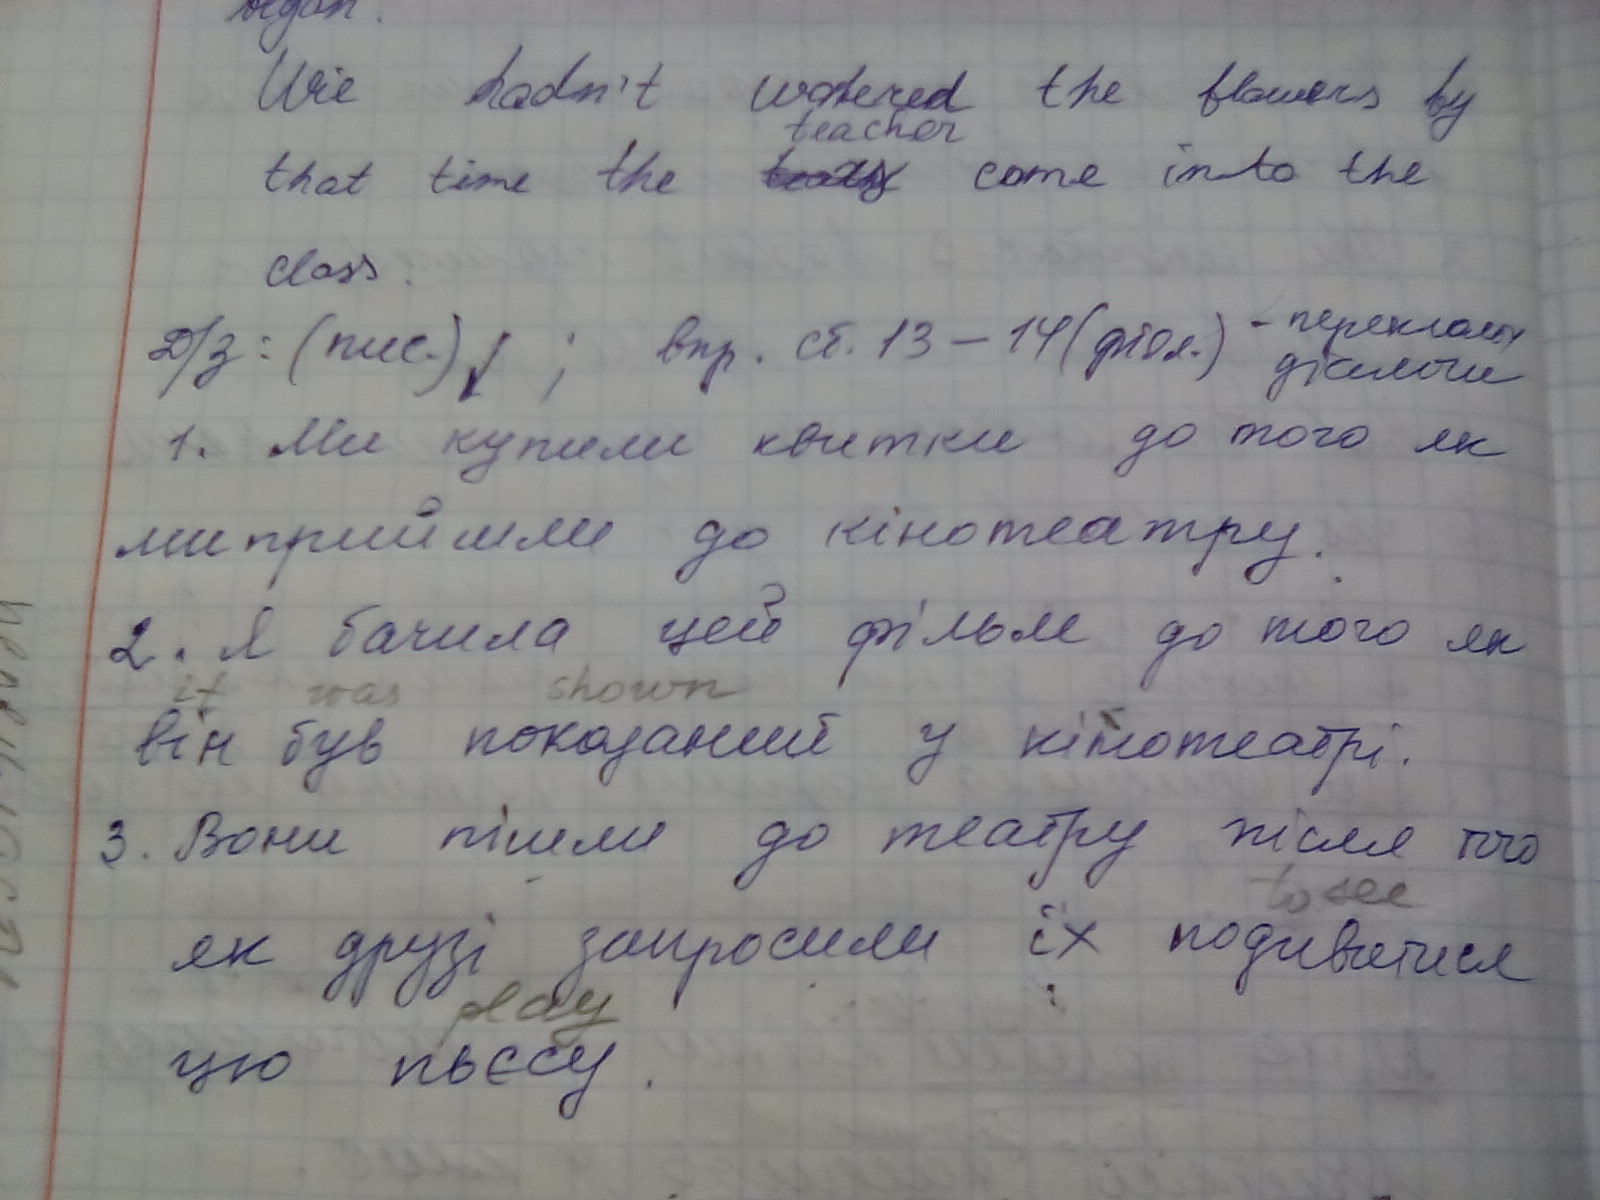 We hadn't watered the flowers by
teacher
that time the came into the
class.
Д/з: (пис.) ↓ ; впр. ст. 13 – 14 (діал.) - переклад
діалоги
1. Ми купили квитки до того як
ми прийшли до кінотеатру.
2. Я бачила цей фільм до того як
it was shown
він був показаний у кінотеатрі.
3. Вони пішли до театру після того
to see
як друзі запросили їх подивитися
play
цю пьєсу.